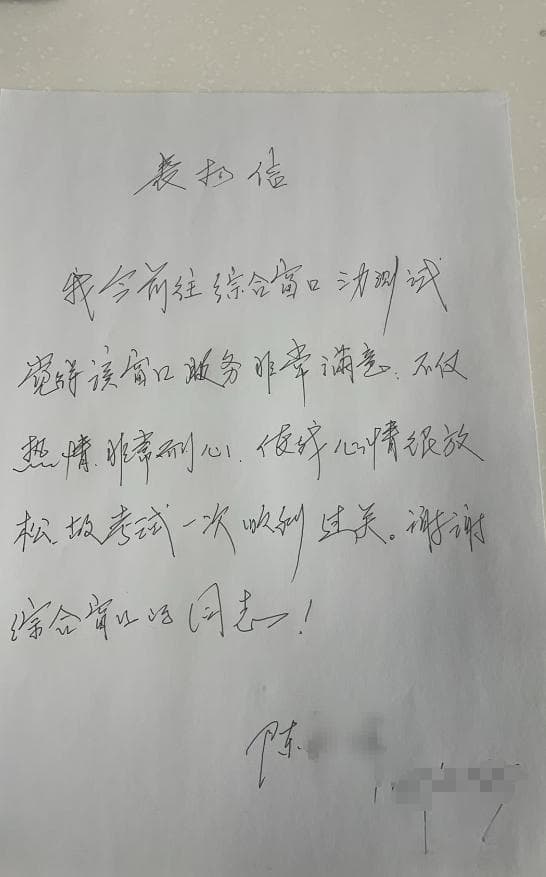 表扬信
我今前往综合窗口办测试
觉得该窗口服务非常满意.不仅
热情.非常耐心.使我心情很放
松.故考试一次顺利过关。谢谢
综合窗口的同志!
陈